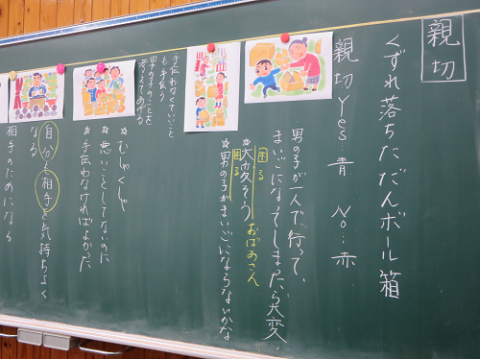 親切
くずれ落ちただんボール箱
親切 Yes…青 No…赤
男の子が一人で、行って、
まいごになってしまったら大変
困る
☆大変そう おばあさん
困る
☆男の子がまいごにならないかな
手伝わなくていいこと
も手伝う
男の子のことを
考えてあげる
☆むしゃくしゃ
☆悪いことしてないのに
☆手伝わなければよかった
自分も相手も気持ちよく
なる
相手のためになる